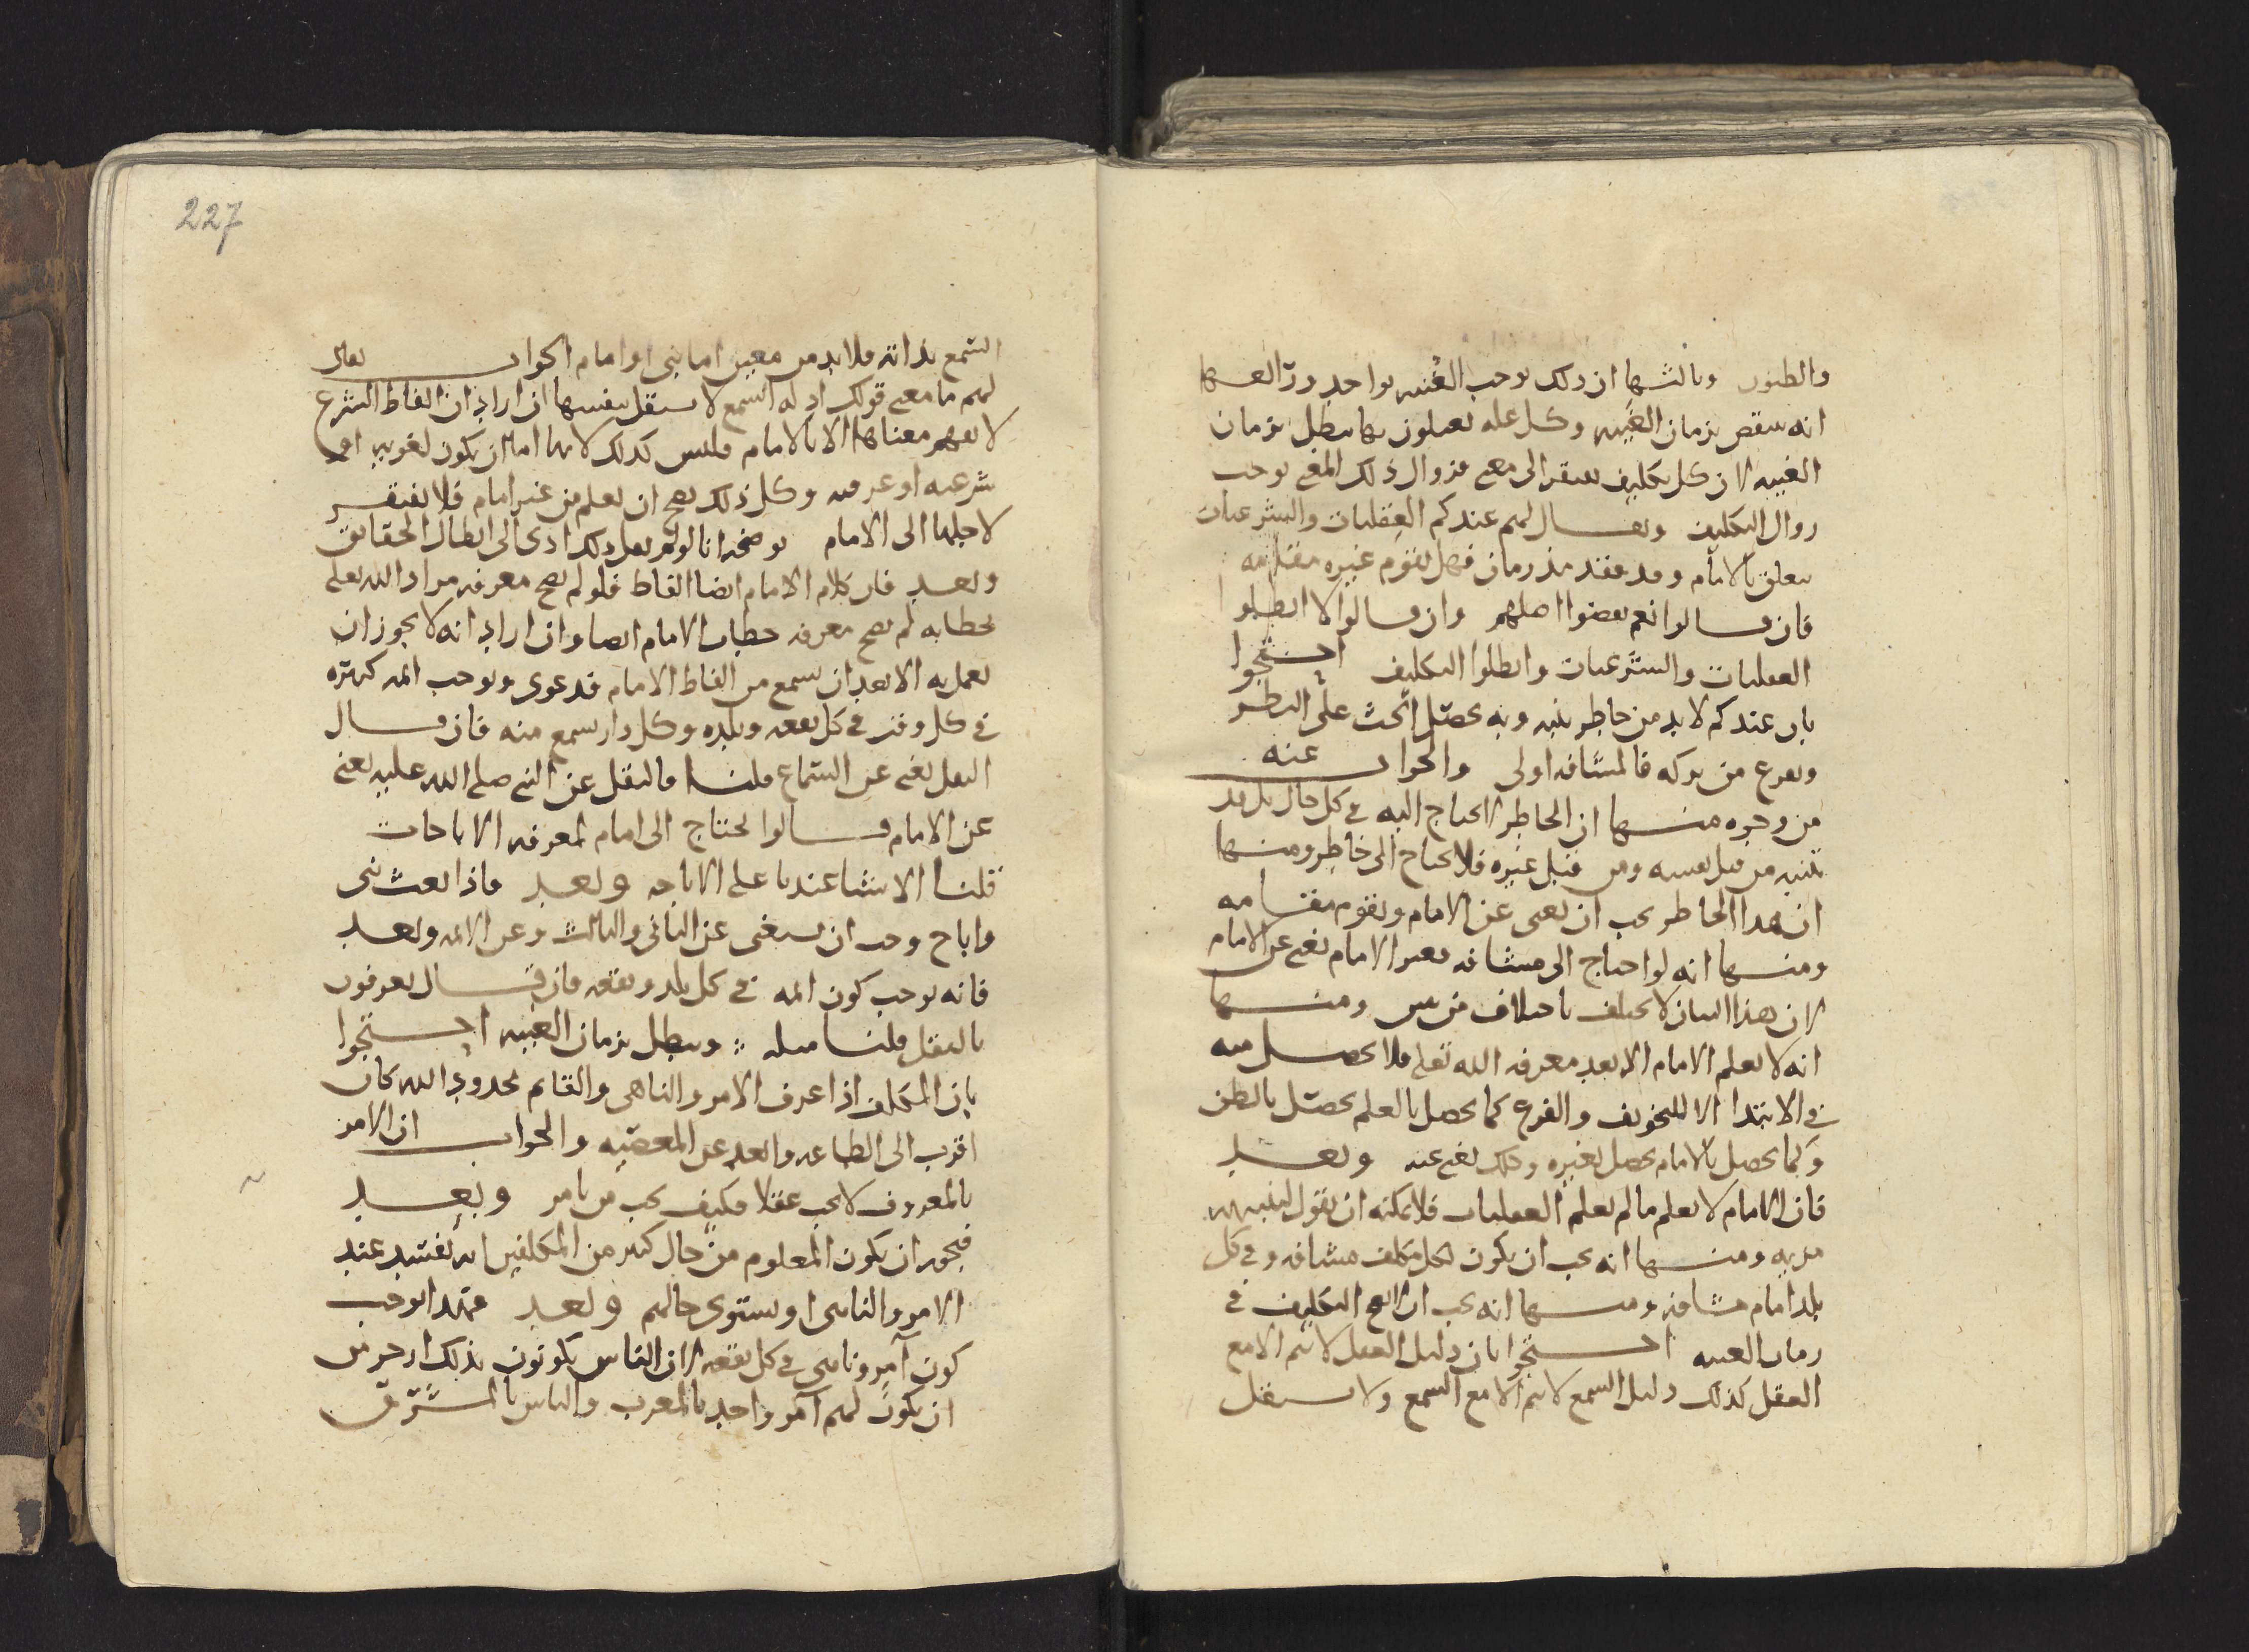 والظنون وثالثها ان ذلك يوجب الغنيه بواحد ورابعها
انه ينتقض بزمان الغيبه وكل علة يعتلون بها تبطل بزمان
الغيبه لان كل تكليف يفتقر الى معنى فزوال ذلك المعنى يوجب
زوال التكليف ويقال لهم عندكم العقليات والشرعيات
يتعلق بالامام وقد فقد منذ زمان فهل يقوم غيره مقامه
فان قالوا نعم نقضوا اصلهم وان قالوا لا ابطلوا
العقليات والشرعيات وابطلوا التكليف احتجوا
بان عندكم لابد من خاطر ينبه وبه يحصل الحث على النظر
ويفزع من تركه فالمشافه اولى والجواب عنه
من وجوه منها ان الخاطر لا يحتاج اليه في كل حال بل قد
يتنبه من قبل نفسه ومن قبل غيره فلا يحتاج الى خاطر ومنها
ان هذا الخاطر يجب ان يغني عن الامام ويقوم مقامه
ومنها انه لو احتاج الى مشافه فغير الامام يغني عن الامام
لان هذا البيان لا يختلف باختلاف من يبين ومنها
انه لا يعلم الامام الا بعد معرفه الله تعلى فلا يحصل منه
في الابتدا الا التخويف والفزع كما يحصل بالعلم يحصل بالظن
وكما يحصل بالامام يحصل بغيره وذلك يغني عنه وبعد
فان الامام لا يعلم ما لم يعلم العقليات فلا يمكنه ان يقول لتنبيه
مزيه ومنها انه يجب ان يكون لكل مكلف مشافه وفي كل
بلد امام مشافه ومنها انه يجب ان لا يصح التكليف في
زمان الغيبه احتجوا بان دليل العقل لا يتم الا مع
العقل كذلك دليل السمع لا يتم الا مع السمع ولا يستقل
227
السمع بذاته فلا بد من معبر اما نبي او امام الجواب يقال
لهم ما معنى قولك ادله السمع لا تستقل بنفسها ان اراد ان الفاظ الشرع
لا يفهم معناها الا بالامام فليس كذلك لانها اما ان يكون لغويه او
شرعيه او عرفيه وكل ذلك يصح ان يعلم من غير امام فلا يفتقر
لاجلها الى الامام يوضحه انا لو لم نقل ذلك ادى الى ابطال الحقائق
وبعد فان كلام الامام ايضا الفاظ فلو لم يصح معرفه مراد الله تعلى
بخطابه لم يصح معرفه خطاب الامام ايضا وان اراد انه لا يجوز ان
يعمل به الا بعد ان يسمع من الفاظ الامام فدعوى ويوجب ائمه كثيره
في كل وقت في كل بقعه وبلده وكل دار يسمع منه فان قال
النقل يغني عن السماع قلنا فالنقل عن النبي صلى الله عليه يغني
عن الامام قالوا يحتاج الى امام لمعرفه الاباحات
قلنا الاشيا عندنا على الاباحه وبعد فاذا بعث نبي
واباح وجب ان يستغنى عن الثاني والثالث وعن الائمه وبعد
فانه يوجب كون ائمه في كل بلد وبقعه فان قال يعرفون
بالنقل قلنا مثله ويبطل بزمان الغيبه احتجوا
بان المكلف اذا عرف الامر والناهي والقائم بحدود الله كان
اقرب الى الطاعه وابعد عن المعصيه والجواب ان الامر
بالمعروف لا يجب عقلا فكيف يجب من يامر وبعد
فيجوز ان يكون المعلوم من حال كثير من المكلفين انه يفسد عند
الامر والناهي او يستوي حالهم وبعد فهذا يوجب
كون آمر وناهي في كل بقعه لان الناس يكونون بذلك ازجر من
ان يكون لهم آمر واحد بالمغرب والناس بالمشرق